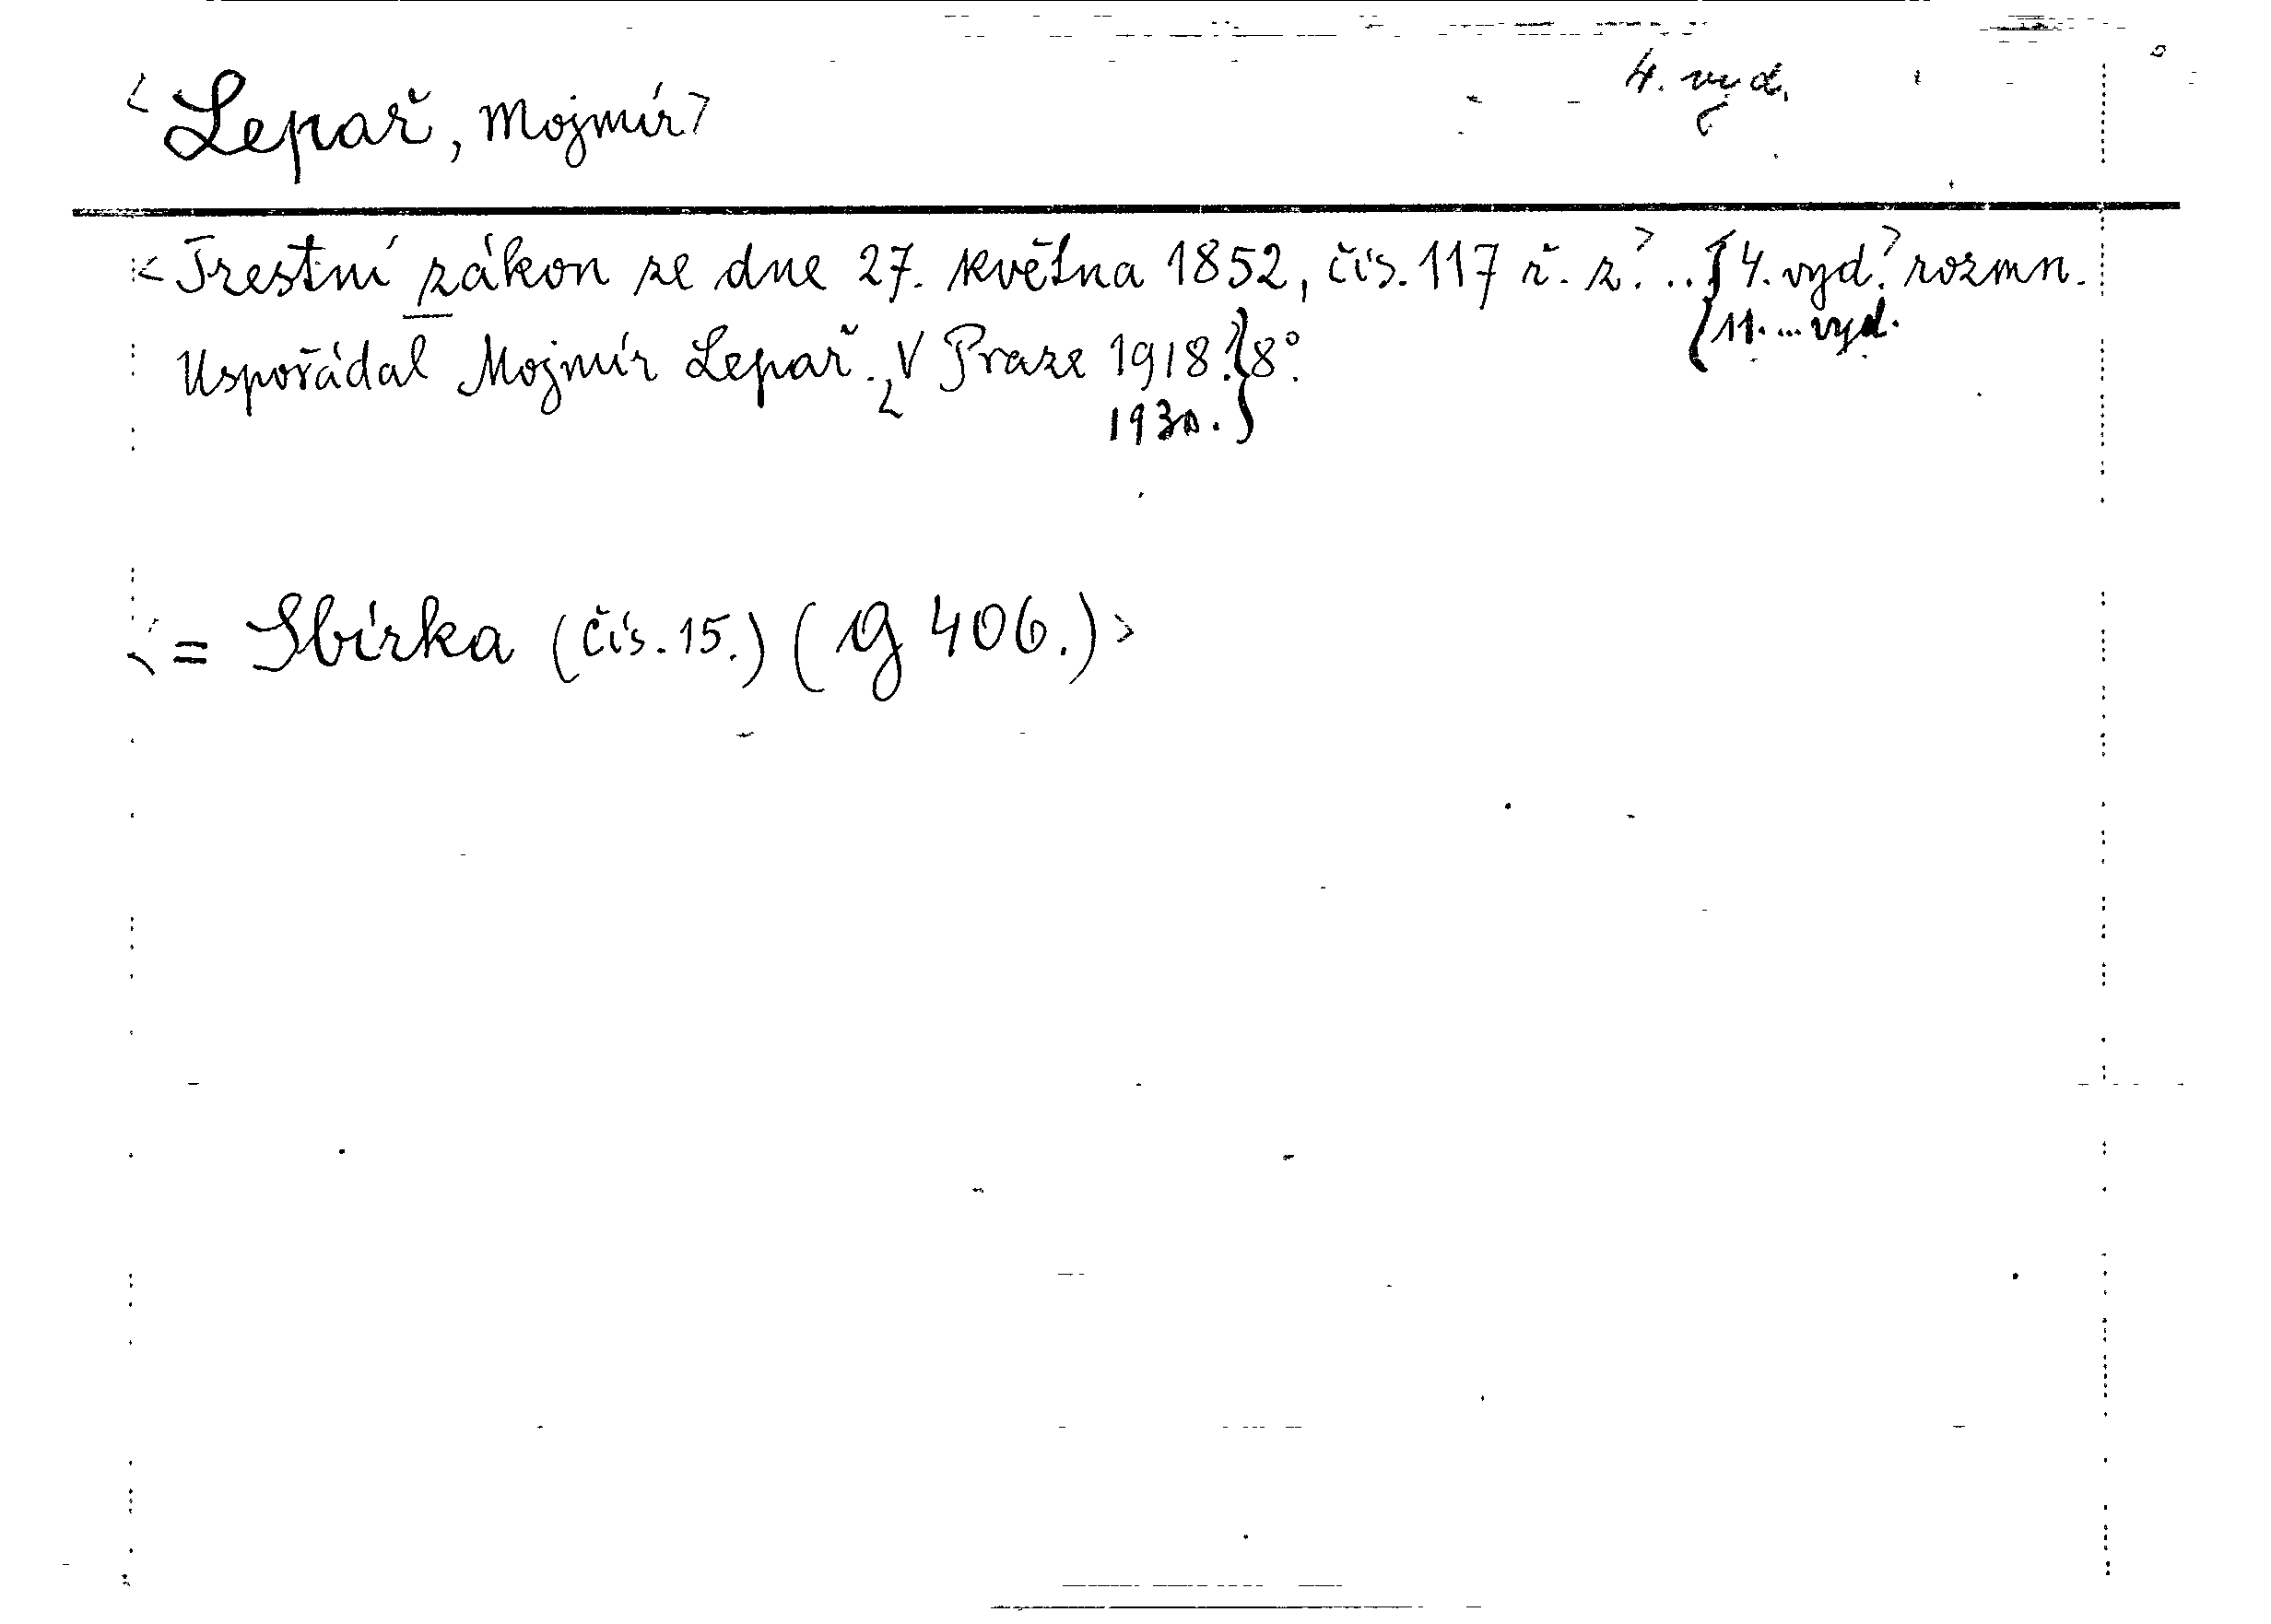 4. vyd.
<Lepař, Mojmír>
<Trestní zákon ze dne 27. května 1852, čís. 117 ř. z.> .. {4. vyd.> rozmn.
{11. ... vyd.
Uspořádal Mojmír Lepař. <V Praze 1918.} 8°.
1930.}
<= Sbírka (čís. 15.) (G 406.)>